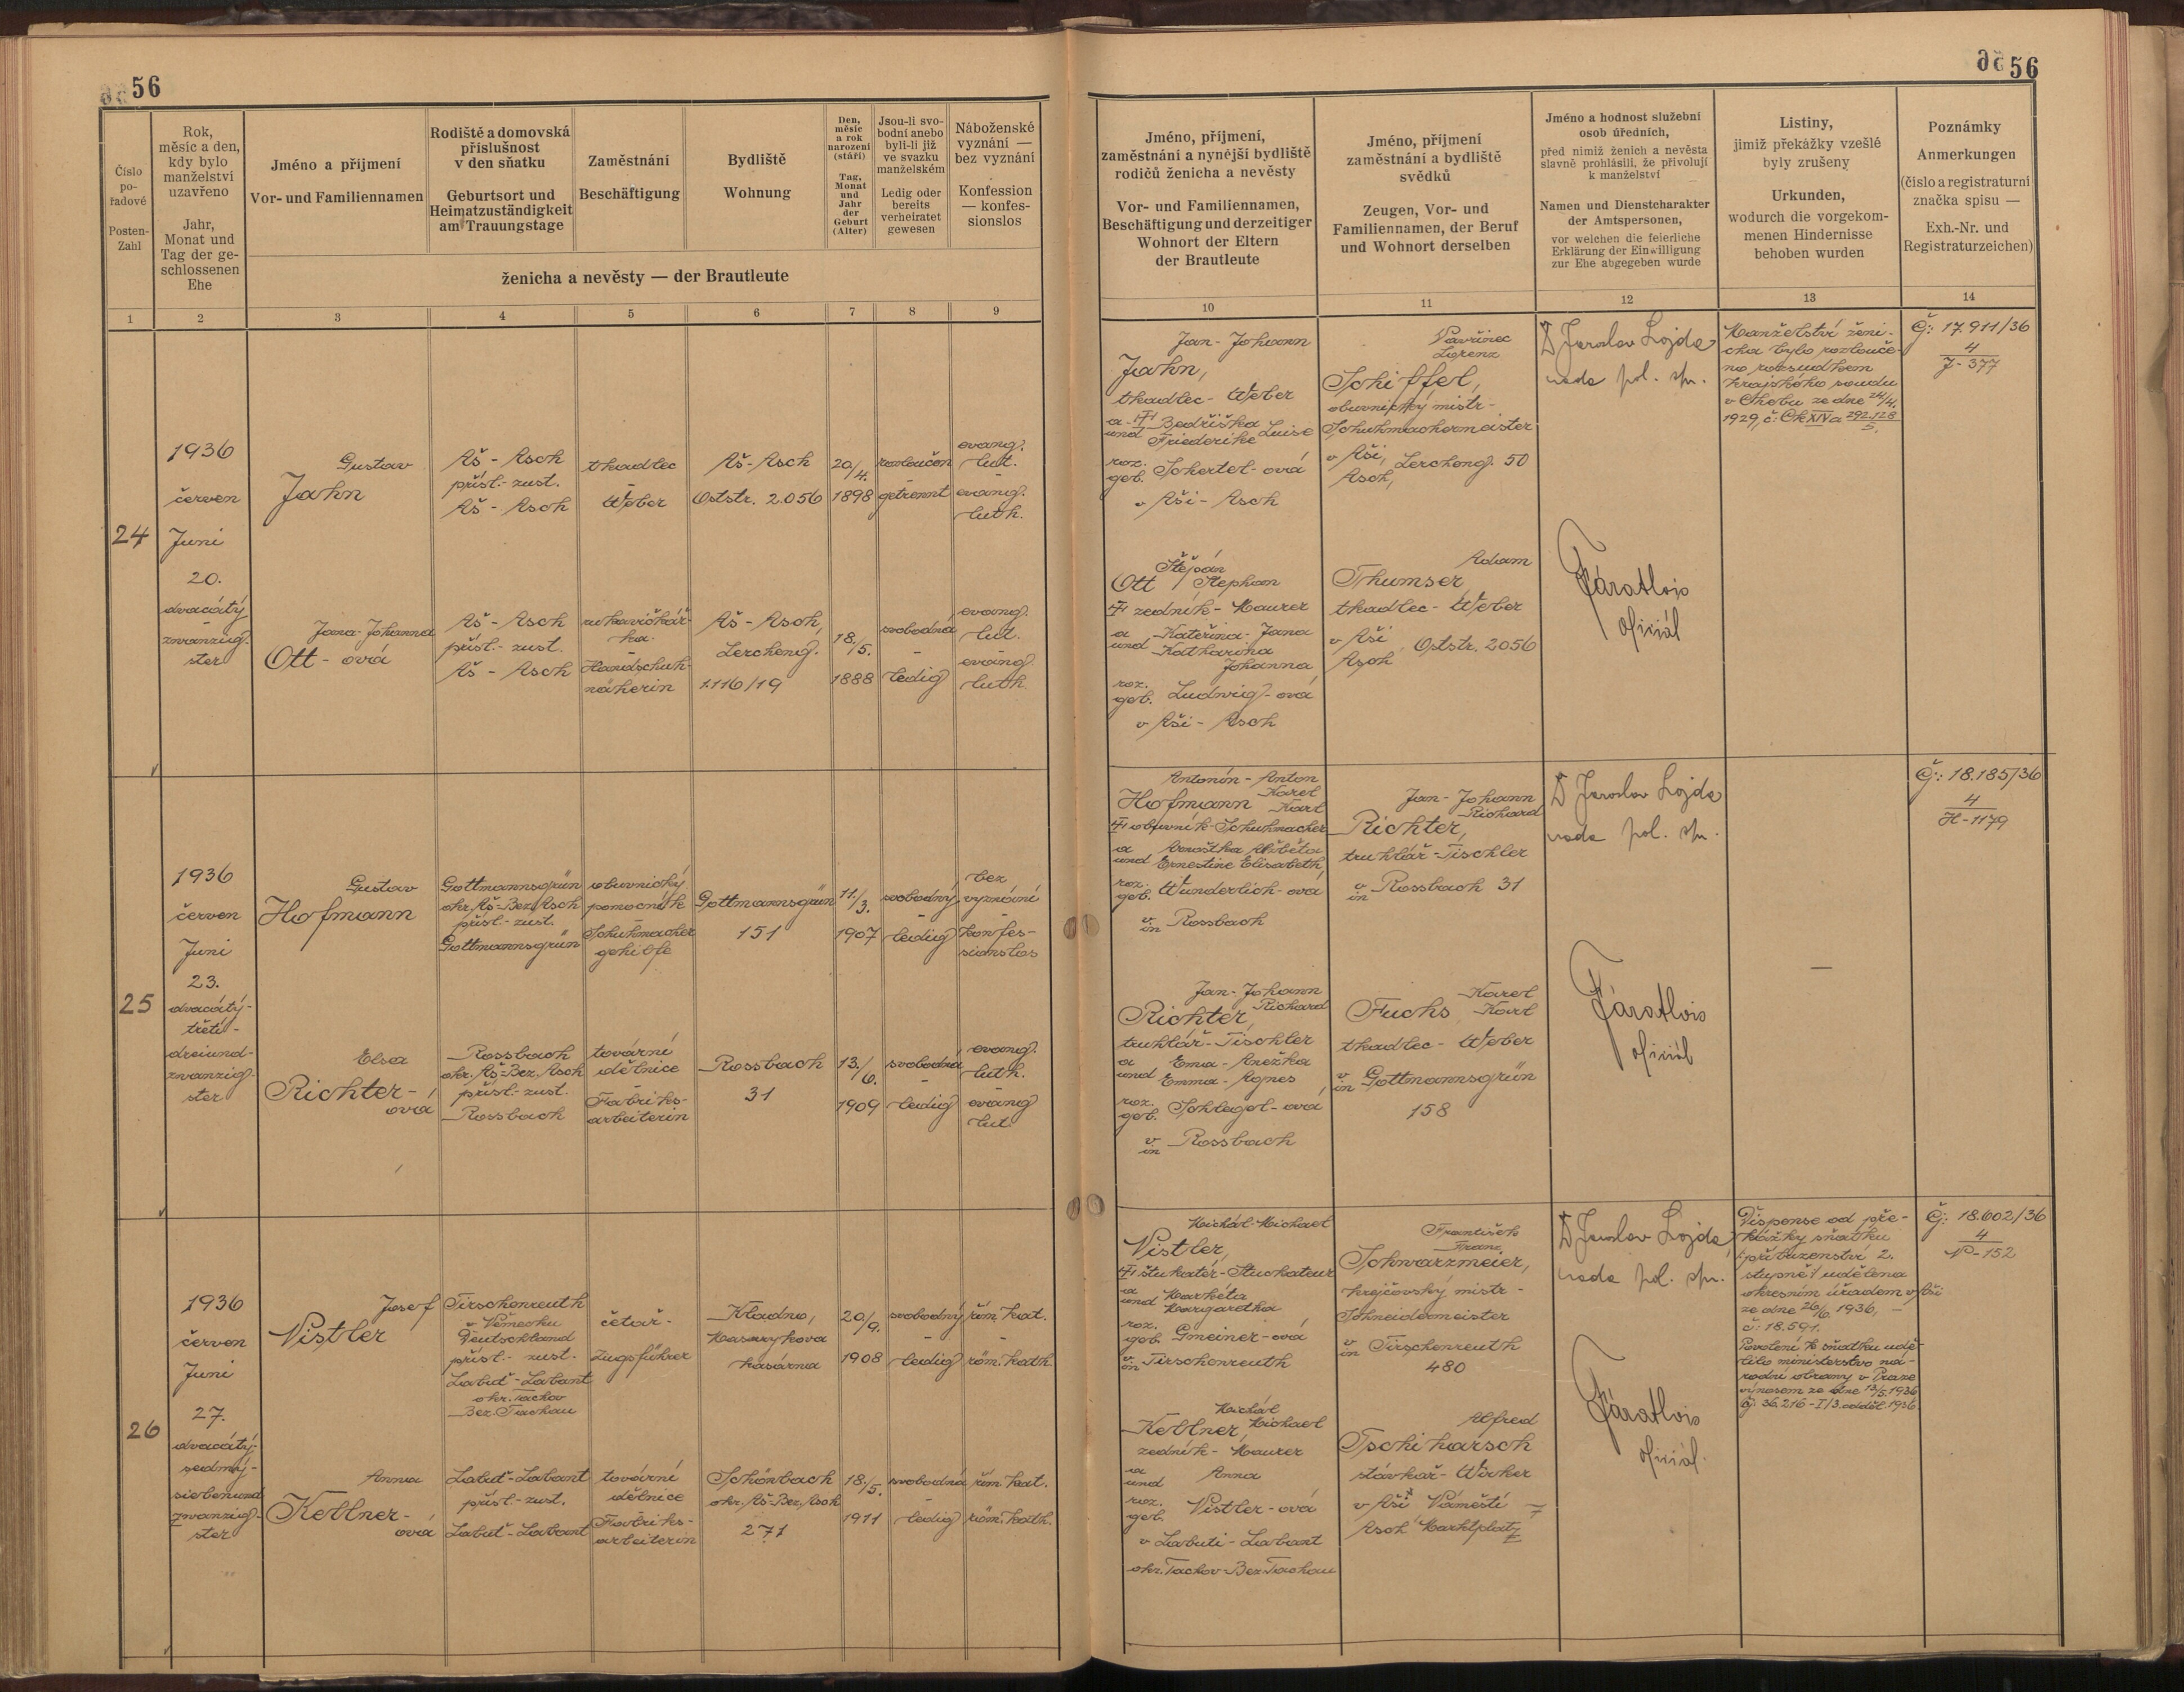 56
56
Číslo
po-
řadové
Posten-
Zahl
Rok,
měsíc a den,
kdy bylo
manželství
uzavřeno
Jahr,
Monat und
Tag der ge-
schlossenen
Ehe
Jméno a příjmení
Vor- und Familiennamen
Rodiště a domovská
příslušnost
v den sňatku
Geburtsort und
Heimatzuständigkeit
am Trauungstage
Zaměstnání
Beschäftigung
Bydliště
Wohnung
Den,
měsíc
a rok
narození
(stáří)
Tag,
Monat
und
Jahr
der
Geburt
(Alter)
Jsou-li svo-
bodní anebo
byli-li již
ve svazku
manželském
Ledig oder
bereits
verheiratet
gewesen
Náboženské
vyznání —
bez vyznání
Konfession
— konfes-
sionslos
ženicha a nevěsty — der Brautleute
Jméno, příjmení,
zaměstnání a nynější bydliště
rodičů ženicha a nevěsty
Vor- und Familiennamen,
Beschäftigung und derzeitiger
Wohnort der Eltern
der Brautleute
Jméno, příjmení
zaměstnání a bydliště
svědků
Zeugen, Vor- und
Familiennamen, der Beruf
und Wohnort derselben
Jméno a hodnost služební
osob úředních,
před nimiž ženich a nevěsta
slavně prohlásili, že přivolují
k manželství
Namen und Dienstcharakter
der Amtspersonen,
vor welchen die feierliche
Erklärung der Einwilligung
zur Ehe abgegeben wurde
Listiny,
jimiž překážky vzešlé
byly zrušeny
Urkunden,
wodurch die vorgekom-
menen Hindernisse
behoben wurden
Poznámky
Anmerkungen
(číslo a registraturní
značka spisu —
Exh.-Nr. und
Registraturzeichen)
1 2 3 4 5 6 7 8 9 10 11 12 13 14
24
1936
červen
Juni
20.
dvacátý
zwanzig-
ster
Gustav
Jahn
Aš - Asch
přísl. - zust.
Aš - Asch
tkadlec
-
Weber
Aš-Asch
Oststr. 2.056
20/4.
1898
rozloučen
-
getrennt
evang.
lut.
-
evang.
luth.
Jana-Johanna
Ott - ová
Aš - Asch
přísl. - zust.
Aš - Asch
rukavičkář-
ka -
Handschuh-
näherin
Aš - Asch,
Lercheng.
1.116/19
18./5.
1888
svobodná
-
ledig
evang.
lut.
-
evang.
luth.
Jan - Johann
Jahn,
tkadlec - Weber
a
und
Bedřiška
Friederike Luise
roz.
geb. Schertel-ová
v Aši - Asch
Vavřinec
Lorenz
Schiffel,
obuvnický mistr -
Schuhmachermeister
v Aši, Lercheng. 50
Asch,
Dr Jaroslav Lojda
rada pol. spr.
Manželství ženi-
cha bylo rozlouče-
no rozsudkem
krajského soudu
v Chebu ze dne 24/4.
1929, č: Ck XIV a 292.128/5.
Čj: 17.911/36
4
J-377
Štěpán
Ott Stephan
zedník - Maurer
a Kateřina - Jana
und Katharina
Johanna,
roz.
geb. Ludwig-ová
v Aši - Asch
Adam
Thumser
tkadlec - Weber
v Aši Oststr. 2056
Asch
oficiál
25
1936
červen
Juni
23.
dvacátý-
třetí -
dreiund-
zwanzig-
ster
Gustav
Hofmann
Gottmannsgrün
okr. Aš-Bez. Asch
přísl. - zust.
Gottmannsgrün
obuvnický
pomocník
Schuhmacher
gehilfe
Gottmannsgrün
151
11/3.
1907
svobodný
-
ledig
bez
vyznání
-
konfes-
sionslos
Elsa
Richter-
ová
Rossbach
okr. Aš-Bez. Asch
přísl. - zust.
Rossbach
tovární
dělnice
-
Fabriks-
arbeiterin
Rossbach
31
13./6.
1909
svobodná
-
ledig
evang.
luth.
-
evang
lut.
Antonín - Anton
Hofmann Karel
Karl
obuvník-Schuhmacher
a Arnoštka Alžběta
und Ernestine Elisabeth,
roz.
geb. Wunderlich-ová
v
in Rossbach
Jan - Johann
Richard
Richter,
truhlář-Tischler
v
in Rossbach 31
Dr Jaroslav Lojda
rada pol. spr.
—
Čj: 18.185/36
4
H-1179
Jan - Johann
Richter, Richard
truhlář-Tischler
a Ema - Anežka
und Emma - Agnes,
roz.
geb. Schlegel-ová
v
in Rossbach
Fuchs Karel
Karl
tkadlec - Weber
v
in Gottmannsgrün
158
oficiál
26
1936
červen
Juni
27.
dvacátý
sedmý -
siebenund
zwanzig-
ster
Josef
Nistler
Tirschenreuth
v Německu
Deutschland
přísl. - zust.
Labuť - Labant
okr. Tachov
Bez. Tachau
četař -
Zugsführer
Kladno,
Masarykova
kasárna
20/9.
1908
svobodný
-
ledig
řím. kat.
-
röm. kath.
Anna
Kellner-
ová
Labuť - Labant
přísl. - zust.
Labuť - Labant
tovární
dělnice
-
Fabriks-
arbeiterin
Schönbach
okr. Aš-Bez. Asch
271
18./5.
1911
svobodná
-
ledig
řím. kat.
-
röm. kath.
Michál-Michael
Nistler,
štukatér-Stuckateur
a Markéta
und Margaretha
roz.
geb. Gmeiner-ová
v
in Tirschenreuth
František
Franz
Schwarzmeier,
krejčovský mistr -
Schneidermeister
v
in Tirschenreuth
480
Dr Jaroslav Lojda
rada pol. spr.
Dispense od pře-
kážky sňatku
příbuzenství 2.
stupně / udělena
okresním úřadem v Aši
ze dne 26/6 1936, -
č: 18.591.
Povolení k sňatku udě-
lilo ministerstvo ná-
rodní obrany v Praze
výnosem ze dne 13/5. 1936
čj: 36.216 - I/3. odděl. 1936
Čj: 18.602/36
4
N-152
Michál
Kellner, Michael
zedník - Maurer
a
und Anna
roz.
geb. Nistler-ová
v Labuti - Labant
okr. Tachov-Bez. Tachau
Alfred
Tschiharsch
stávkař - Wirker
v Aši Náměstí 7
Asch Marktplatz
oficiál.